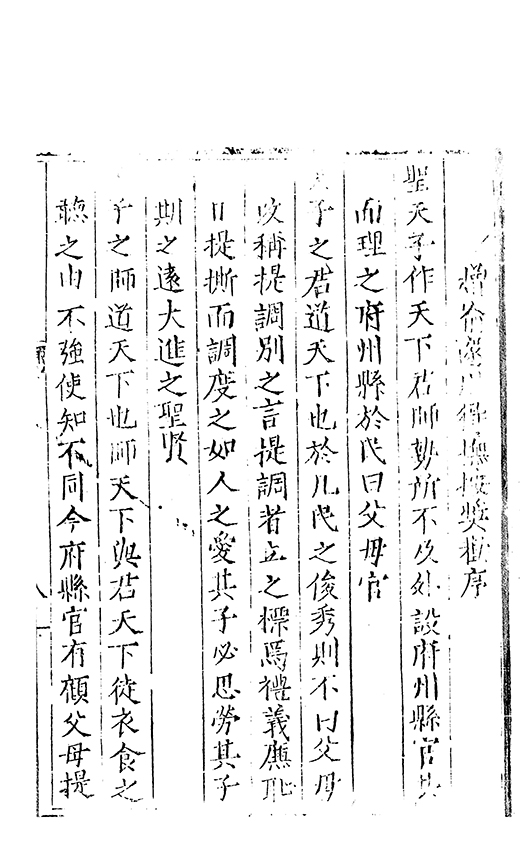 序
聖天子作天下君師勢所不及外設府州縣官共
而理之府州縣於民曰父母官
天子之君道天下也於凡民之俊秀則不曰父母
改稱提調別之言提調者立之標焉禮義廉恥
日提撕而調度之如人之愛其子必思勞其子
期之遠大進之聖賢
子之師道天下也師天下與君天下徒衣食之
聽之由不強使知不同今府縣官有顧父母提